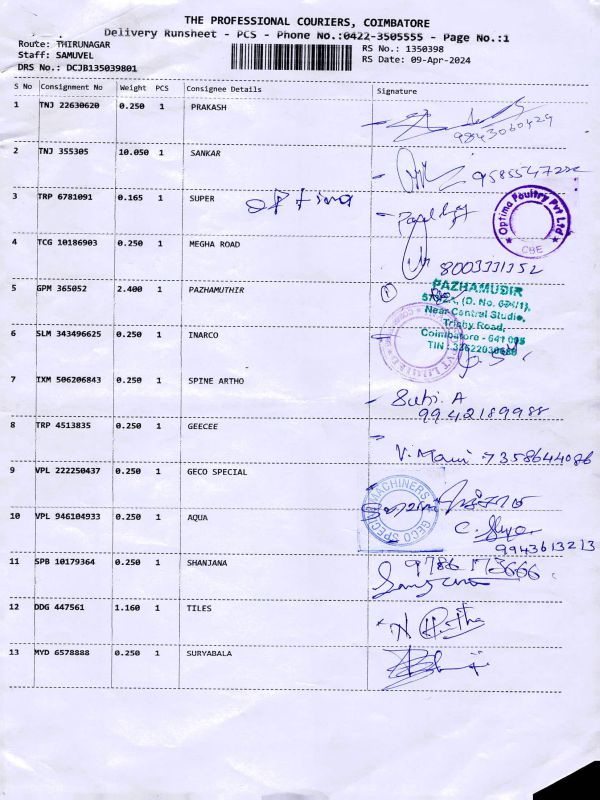 THE PROFESSIONAL COURIERS, COIMBATORE
Delivery Runsheet - PCS - Phone No.:0422-3505555 - Page No.:1
Route: THIRUNAGAR
RS No.: 1350398
Staff: SAMUVEL
RS Date: 09-Apr-2024
DRS No.: DCJB135039801
S No Consignment No Weight PCS Consignee Details Signature
1 TNJ 22630620 0.250 1 PRAKASH
9843060429
2 TNJ 355305 10.050 1 SANKAR
3 TRP 6781091 0.165 1 SUPER
Optima Poultry Pvt Ltd
CBE
4 TCG 10186903 0.250 1 MEGHA ROAD
8003331352
5 GPM 365052 2.400 1 PAZHAMUTHIR
PAZHAMUDIR
Near Central Studio,
Trichy Road,
Coimbatore - 641 005
6 SLM 343496625 0.250 1 INARCO
7 IXM 506206843 0.250 1 SPINE ARTHO
Subi. A
9942189988
8 TRP 4513835 0.250 1 GEECEE
V. Mani 7358644086
9 VPL 222250437 0.250 1 GECO SPECIAL
GECO SPECIAL MACHINERS
10 VPL 946104933 0.250 1 AQUA
9943613213
11 SPB 10179364 0.250 1 SHANJANA
9786 173666
12 DDG 447561 1.160 1 TILES
13 MYD 6578888 0.250 1 SURYABALA